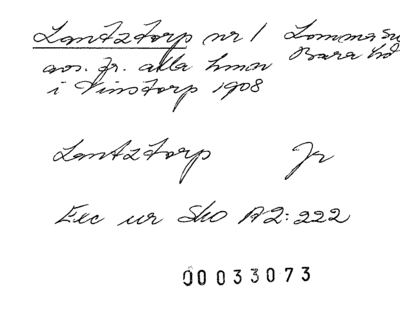 Lantztorp nr 1 Lomma sn
avs. fr. alla hmon Bara hd
i Vinstorp 1908
Lantztorp Jr
Exc ur Sko A2:222
00033073